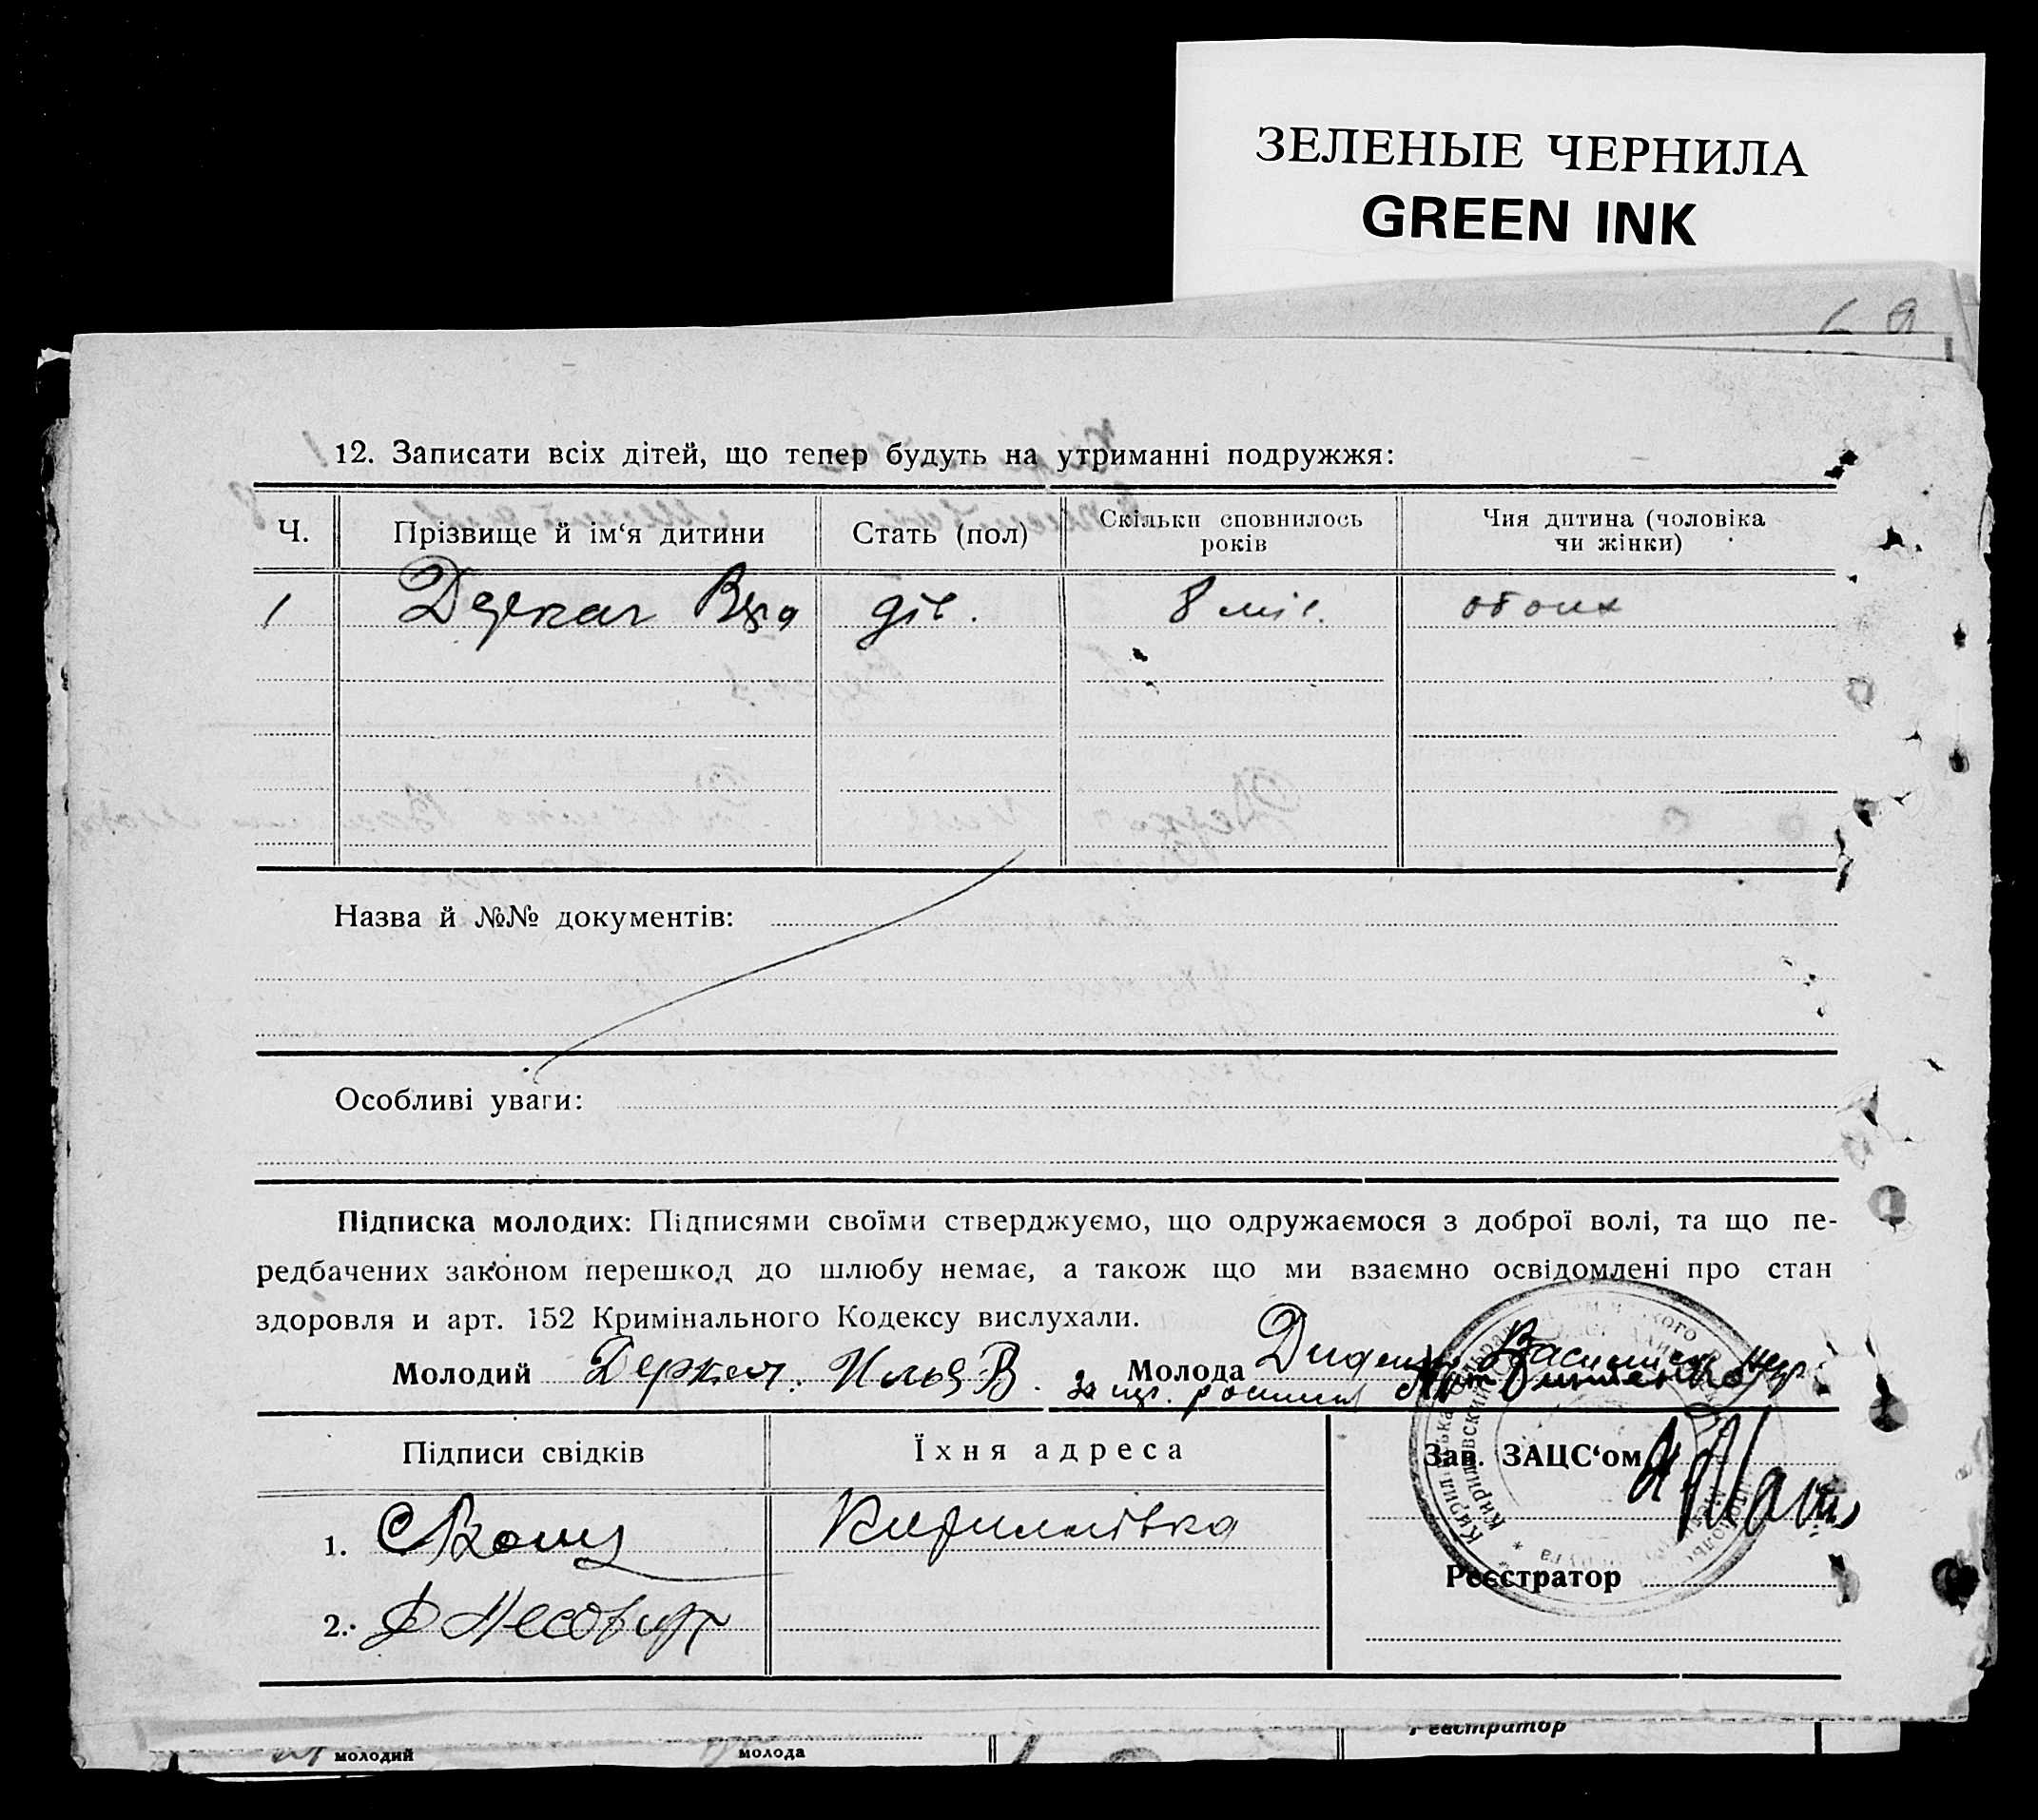 ЗЕЛЕНЫЕ ЧЕРНИЛА
GREEN INK
69
12. Записати всіх дітей, що тепер будуть на утриманні подружжя:
Ч. Прізвище й ім‘я дитини Стать (пол) Скільки сповнилось років Чия дитина (чоловіка чи жінки)
1 Деркач Віра дів. 8 міс. обоих
Назва й №№ документів:
Особливі уваги:
Підписка молодих: Підписями своїми стверджуємо, що одружаємося з доброї волі, та що пе-
редбачених законом перешкод до шлюбу немає, а також що ми взаємно освідомлені про стан
здоровля и арт. 152 Кримінального Кодексу вислухали.
Молодий Деркач Илья В. Молода Диденко
Підписи свідків Їхня адреса Зав. ЗАЦС‘ом
1. Кирилівка
Реєстратор
2.
Реєстратор
молодий молода